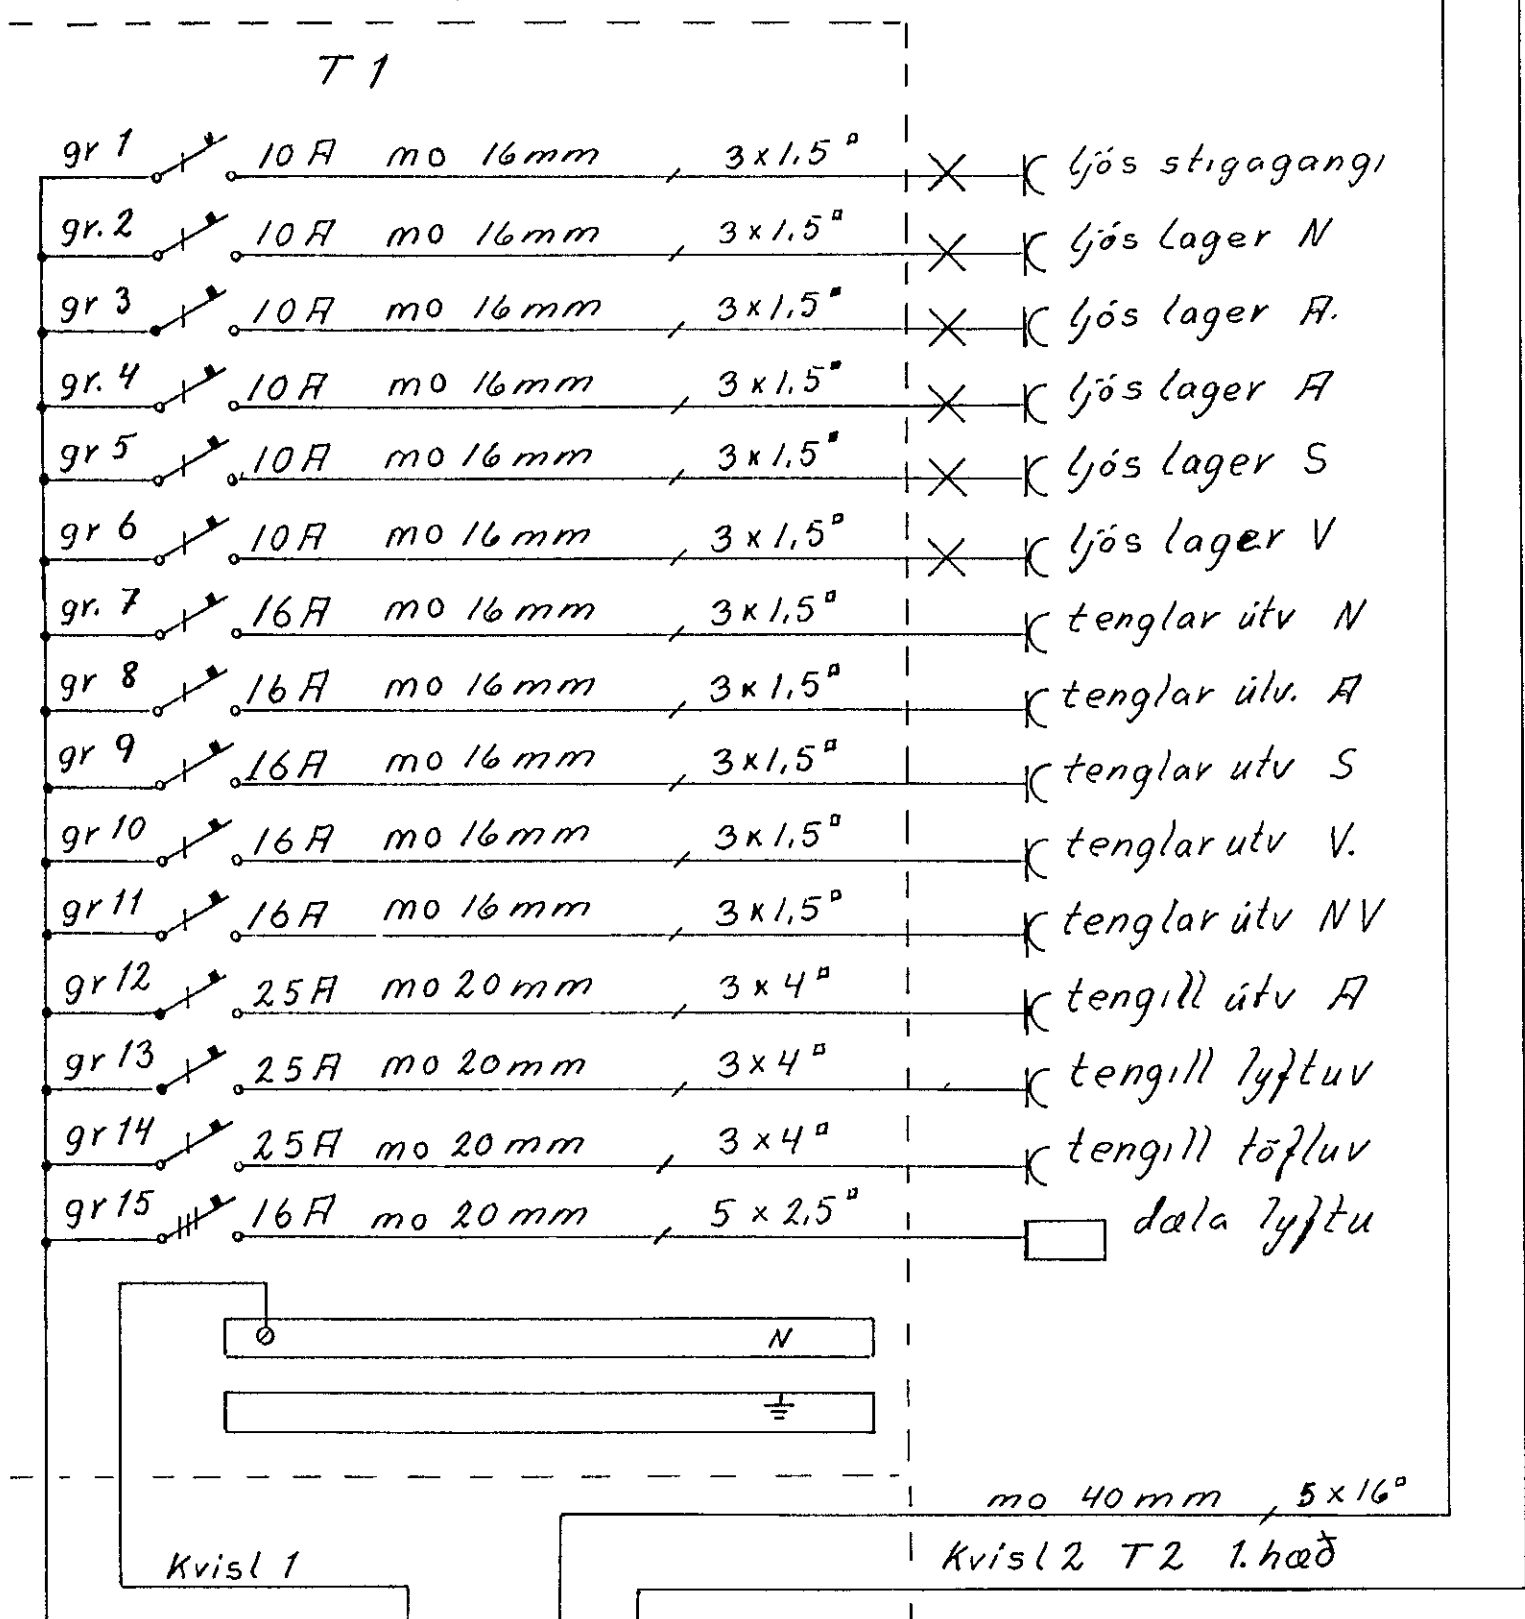 T 1
gr 1 10 A mo 16mm 3x1.5▫ ljós stigagangi
gr. 2 10 A mo 16mm 3x1.5▫ ljós lager N
gr 3 10 A mo 16mm 3x1.5▫ ljós lager A.
gr. 4 10 A mo 16mm 3x1.5▫ ljós lager A
gr 5 10 A mo 16mm 3x1.5▫ ljós lager S
gr 6 10 A mo 16mm 3x1,5▫ ljós lager V
gr. 7 16 A mo 16mm 3x1.5▫ tenglar útv N
gr 8 16 A mo 16mm 3x1.5▫ tenglar útv. A
gr 9 16 A mo 16mm 3x1,5▫ tenglar utv S
gr 10 16 A mo 16mm 3x1.5▫ tenglar utv V.
gr 11 16 A mo 16mm 3x1,5▫ tenglar útv NV
gr 12 25 A mo 20mm 3x4▫ tengill útv A
gr 13 25 A mo 20mm 3x4▫ tengill lyftuv
gr 14 25 A mo 20mm 3x4▫ tengill töfluv
gr 15 16 A mo 20mm 5x2,5▫ dæla lyftu
N
mo 40mm 5x16▫
Kvisl 1 Kvísl 2 T2 1. hæð